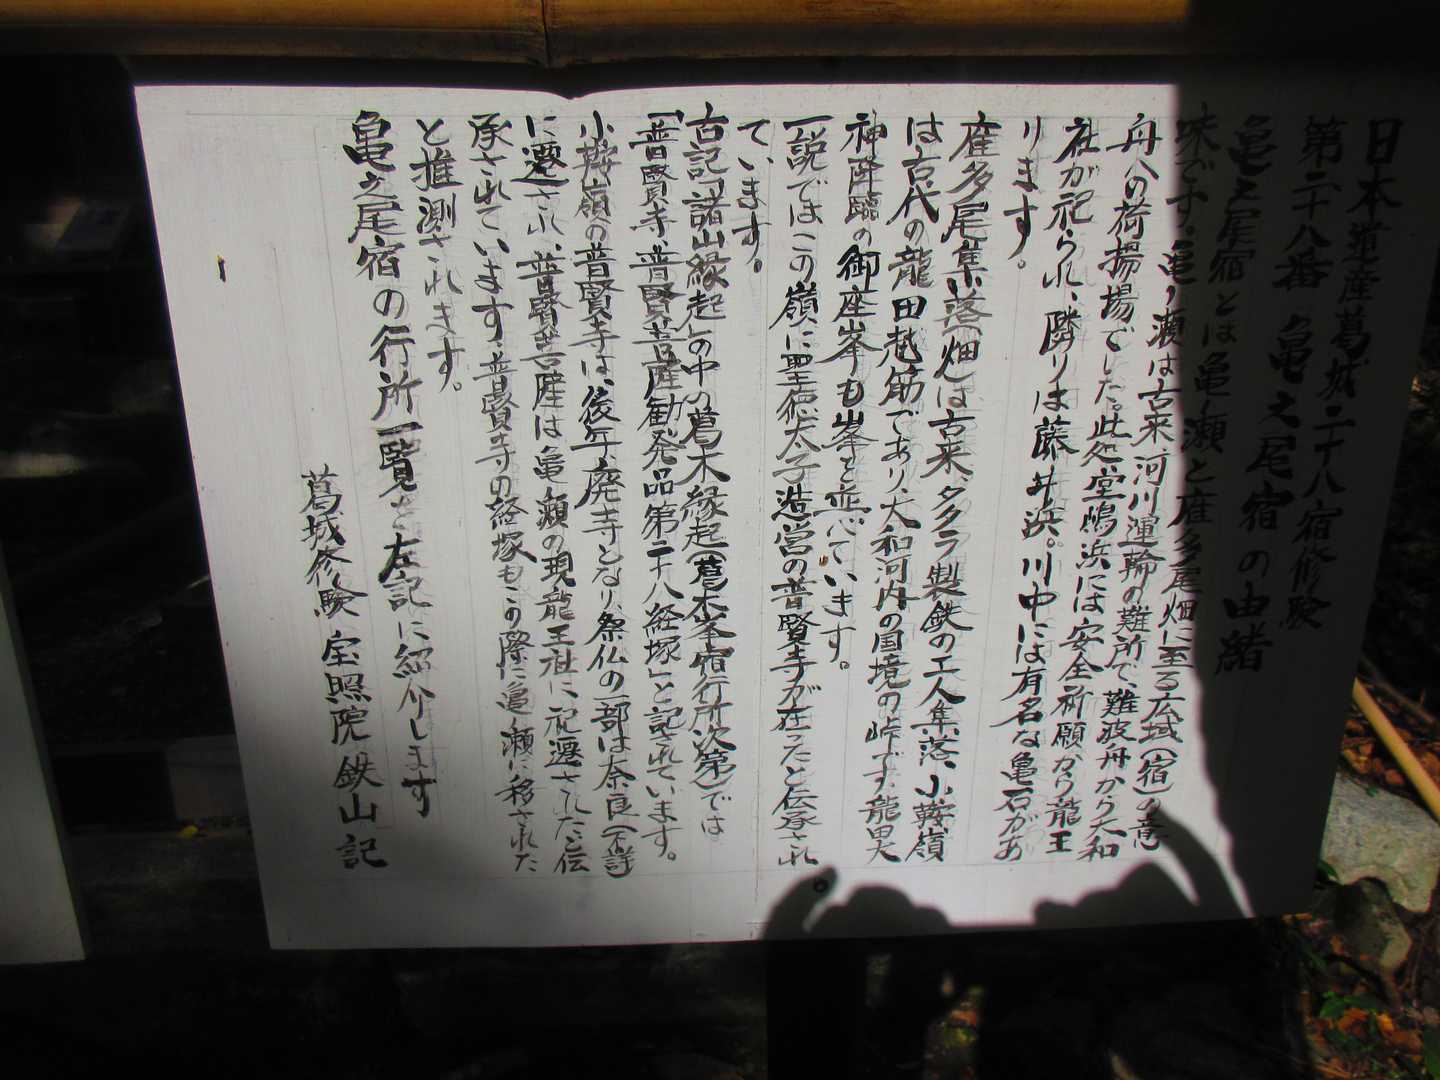 日本遺産葛城二十八宿修験
第二十八番 亀之尾宿の由緒
亀之尾宿とは亀ノ瀬と雁多尾畑に至る広域(宿)の意
味です。亀ノ瀬は古来、河川運輸の難所で、難波舟から大和
舟への荷揚場でした。此処堂嶋浜には安全祈願から龍王
社が祀られ、隣りは藤井浜。川中には有名な亀石があ
ります。
雁多尾集落(畑)は古来、タタラ製鉄の工人集落、小鞍嶺
は古代の龍田越筋であり、大和河内の国境の峠です。龍田大
神降臨の御座峯も峯を並べています。
一説ではこの嶺に聖徳太子造営の普賢寺が在ったと伝承され
ています。
古記「諸山縁起」の中の葛木縁起(葛木峯宿行所次第)では
「普賢寺、普賢菩薩勧発品第二十八経塚」と記されています。
小鞍嶺の普賢寺は、後年廃寺となり、祭仏の一部は奈良(不詳)
に遷され、普賢菩薩は亀ノ瀬の現龍王社に祀遷されたと伝
承されています。普賢寺の経塚もこの際に亀ノ瀬に移された
と推測されます。
亀之尾宿の行所一覧を左記に紹介します
葛城修験 宝照院 鉄山記